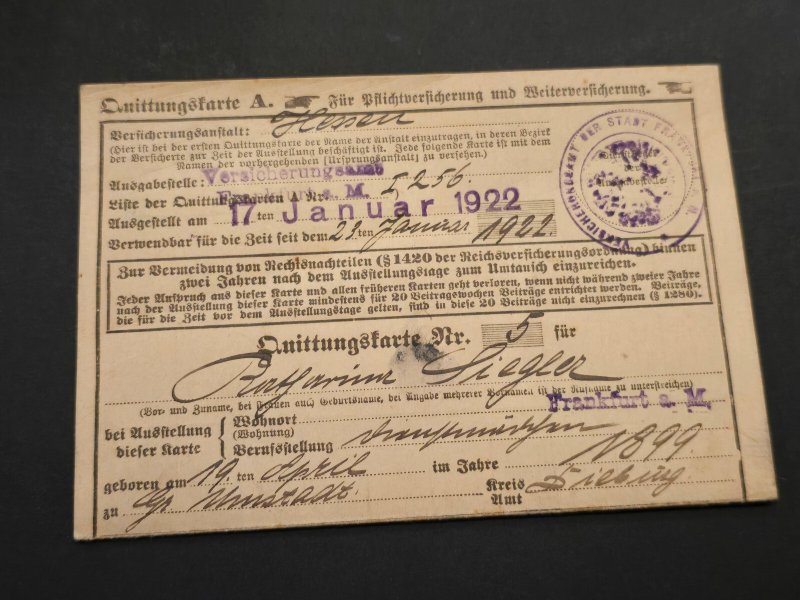 Quittungskarte A. Für Pflichtversicherung und Weiterversicherung.
Versicherungsanstalt: Hessen
(Hier ist bei der ersten Quittungskarte der Name der Anstalt einzutragen, in deren Bezirk
der Versicherte zur Zeit der Ausstellung beschäftigt ist. Jede folgende Karte ist mit dem
Namen der vorhergehenden (Ursprungsanstalt) zu versehen.)
Ausgabestelle: Versicherungsamt
Frankfurt a. M.
Liste der Quittungskarten A Nr. I 256
Ausgestellt am 17 ten Januar 1922
Verwendbar für die Zeit seit dem 23 ten Januar 1922.
VERSICHERUNGSAMT DER STADT FRANKFURT A. M.
der
Ausgabestelle
Zur Vermeidung von Rechtsnachteilen (§ 1420 der Reichsversicherungsordnung) binnen
zwei Jahren nach dem Ausstellungstage zum Umtausch einzureichen.
Jeder Anspruch aus dieser Karte und allen früheren Karten geht verloren, wenn nicht während zweier Jahre
nach der Ausstellung dieser Karte mindestens für 20 Beitragswochen Beiträge entrichtet werden. Beiträge,
die für die Zeit vor dem Ausstellungstage gelten, sind in diese 20 Beiträge nicht einzurechnen (§ 1280).
Quittungskarte Nr. 5 für
Katharina Siegler
(Vor- und Zuname, bei Frauen auch Geburtsname, bei Angabe mehrerer Vornamen ist der Rufname zu unterstreichen)
bei Ausstellung dieser Karte
Wohnort Frankfurt a. M.
(Wohnung)
Berufsstellung Dienstmädchen
geboren am 19 ten April im Jahre 1899
zu Gr. Umstadt Kreis Amt Dieburg